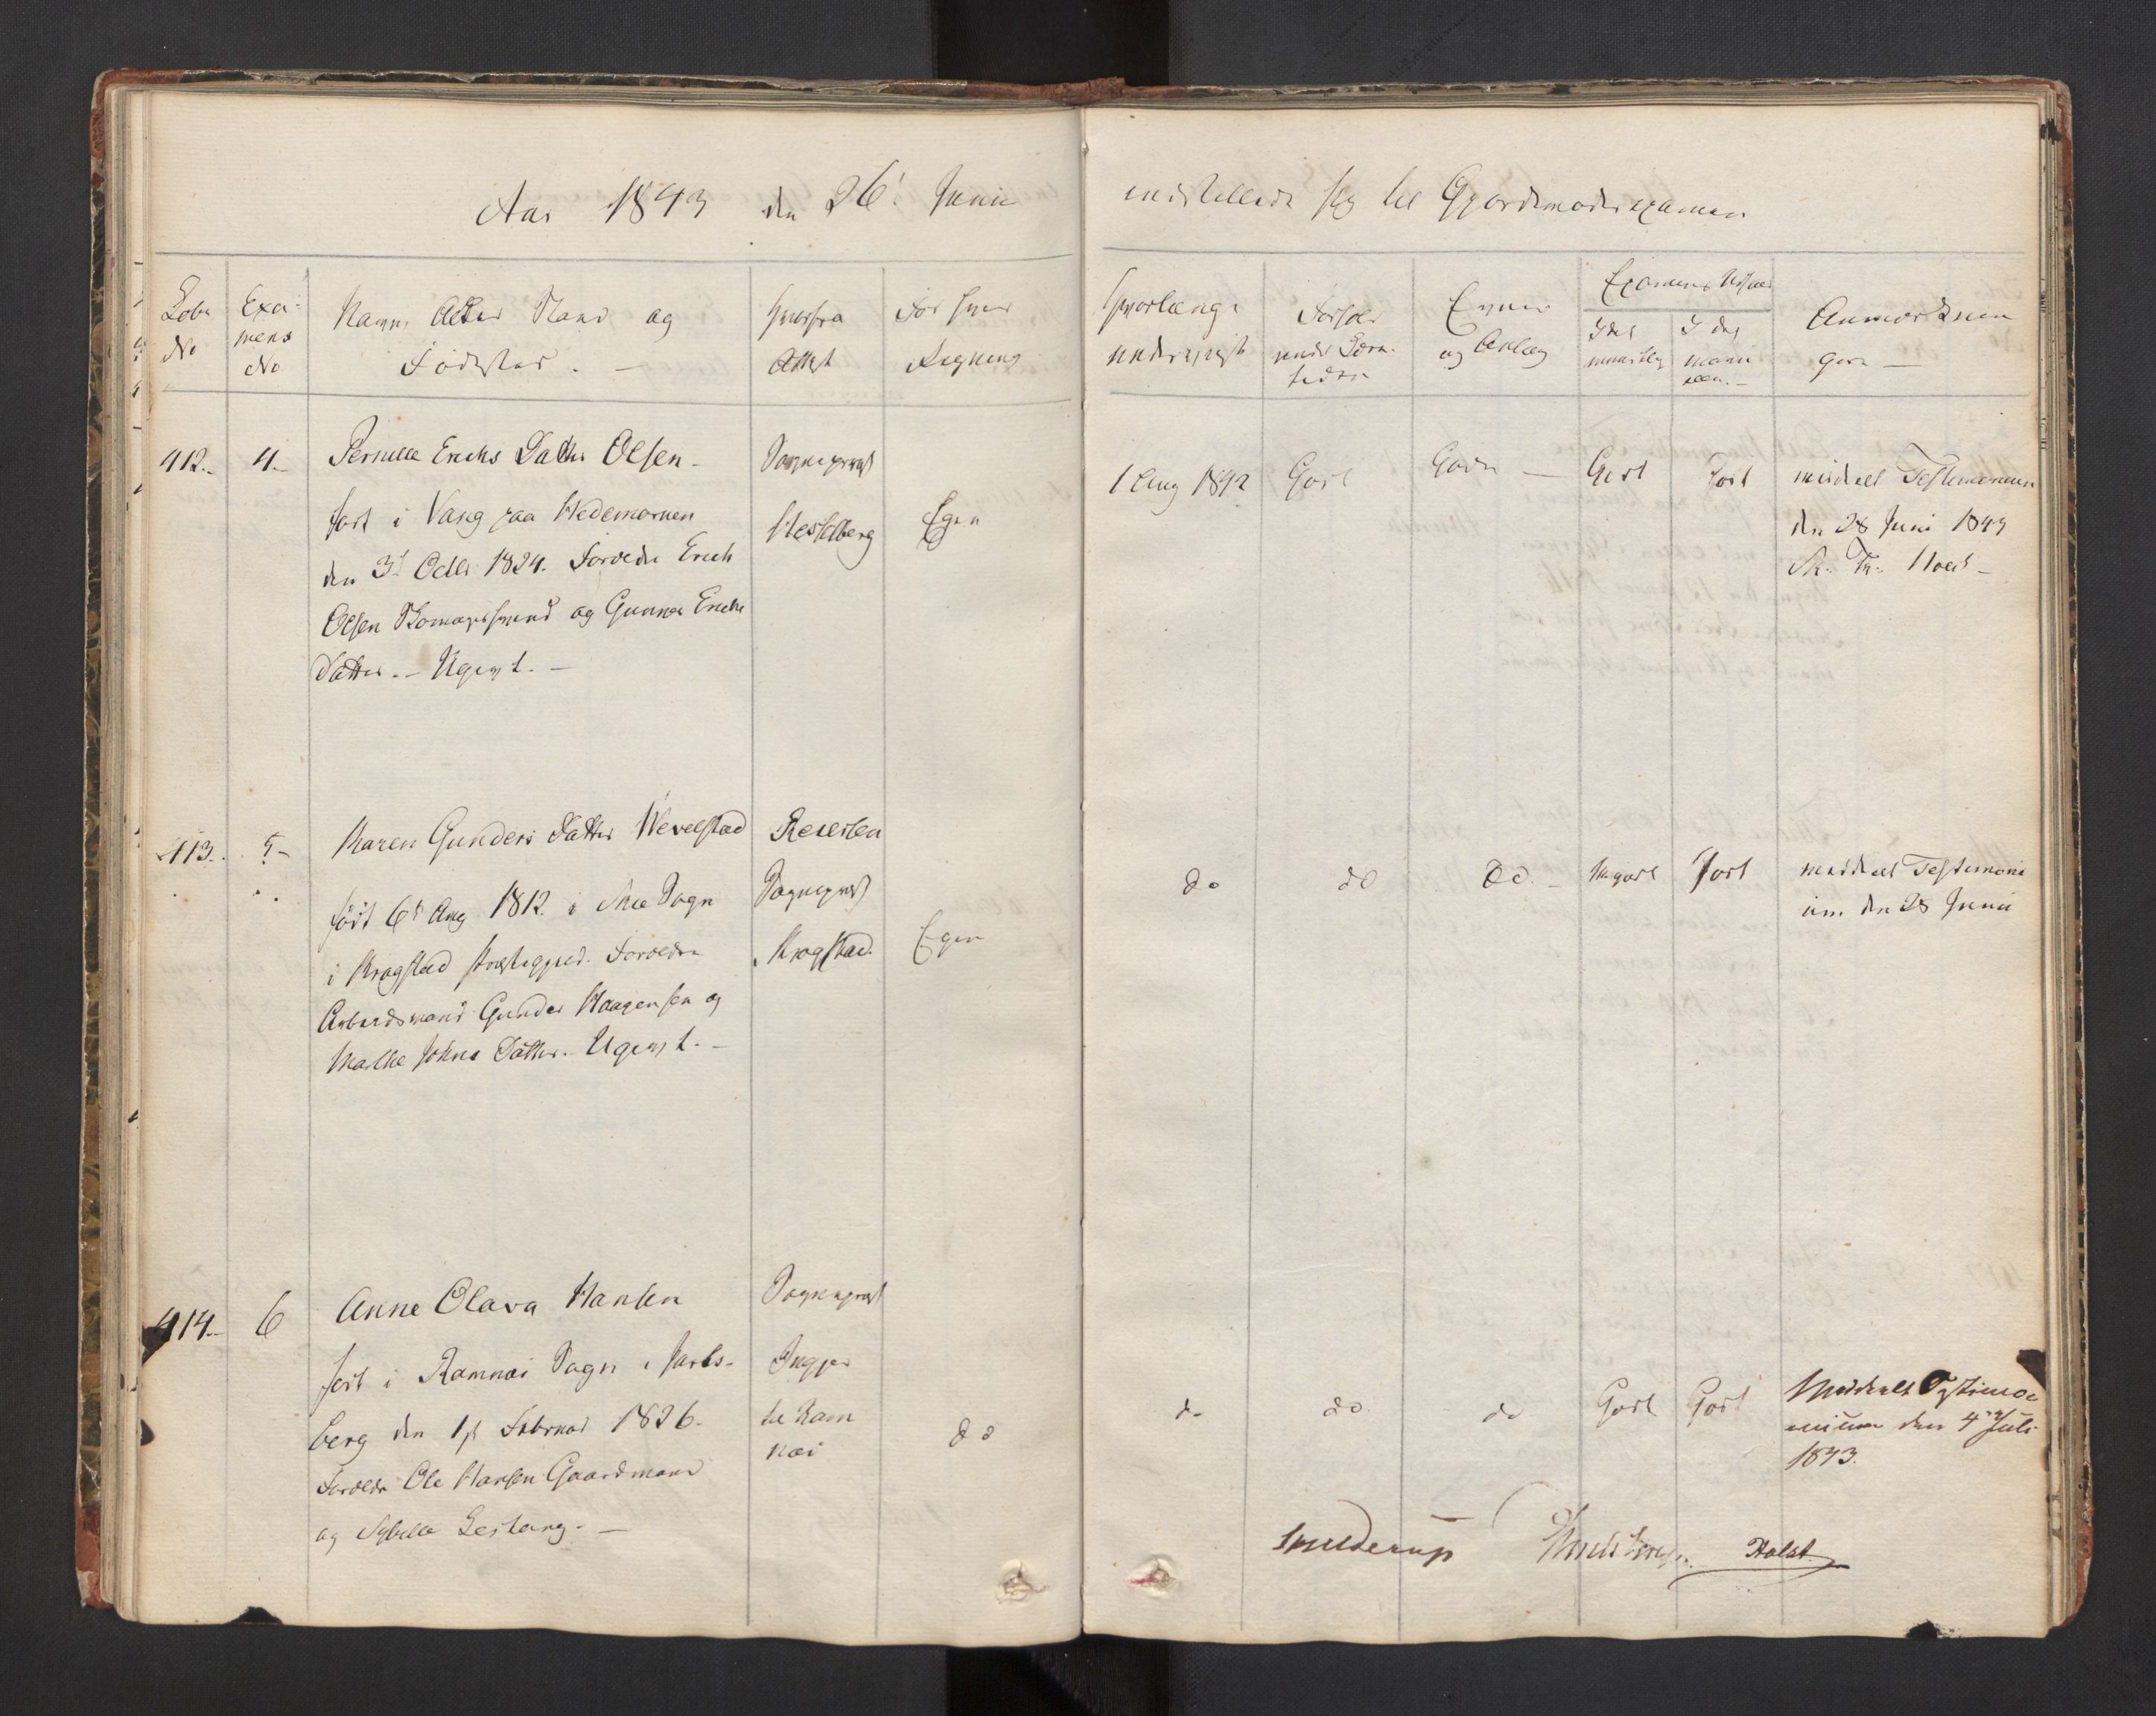 Aar 1843 den 26. Junii
indstillede sig til Gjordemoderexamen
Løbe No
Exa-
mens
No
Navn, Alder Stand og
Fødested. —
Hvorfra
Attest
For hvis
Regning
Hvorlænge
underviist
Forhold
under Lære-
tiden
Evner
og Anlæg
Examens Udfald
I det
mundtlig
I det
manu
ellen. —
Anmærknin
ger —
412. 4. Pernille Erichs Datter Olsen -
født i Vang paa Hedemarken
den 3d Octbr 1824. Forældre Erich
Olsen Thomassand og Gunnor Erichs
Datter. — Ugivt. —
Sognepræst
Hesselberg
Egen
1 Aug 1842 Godt Gode — Godt Godt
meddelt Testimonium
den 28 Juni 1843
413. 5 - Karen Gunders Datter Wevelstad
født 6d Aug 1812. i Skie Sogn
i Kragstad Præstegjeld. Forældre
Arbeidsmand Gunder Haagensen og
Marthe Johns Datter. - Ugivt. -
Sognepræst
Krogstad.
Egen
do do do. - Megodt Godt
meddelt Testimoni
um den 28 Junii
414. 6 Anne Olava Hansen
født i Ramnæs Sogn i Jarls-
berg den 1st Februar 1826.
Forældre Ole Hansen Gaardmand
og Sybille
Sognepræst
til Ram
næs
do
do do. do Godt Godt
Meddeelt Testimo
nium den 4de Juli
1843.
Skjelderup Holst